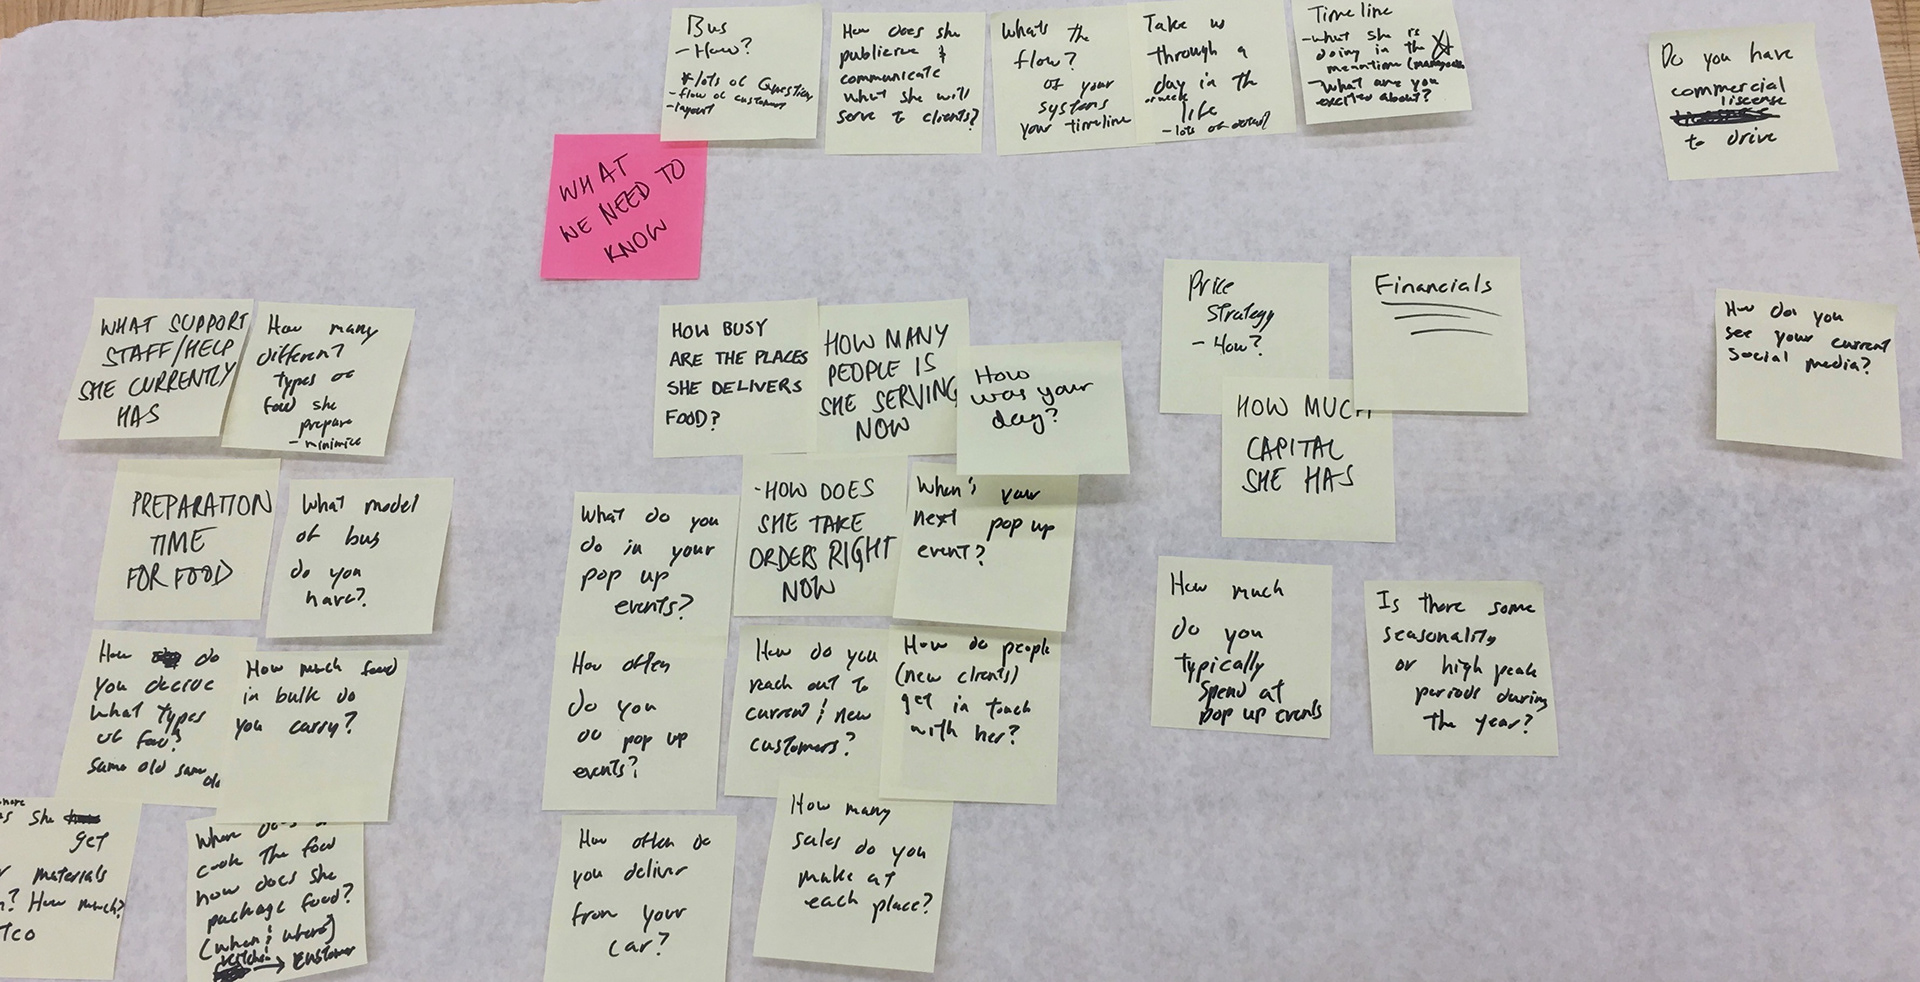 Bus
- How?
* lots of Question
- flow of customers
- layout
How does she
publicize &
communicate
what she will
serve to clients?
What's the
flow?
of your
systems
your timeline
Take us
through a
day in the
or week
life
- lots of detail
Timeline
- what she is
doing in the
meantime
- What are you
excited about?
Do you have
commercial
liscense
to drive
WHAT
WE NEED TO
KNOW
WHAT SUPPORT
STAFF/HELP
SHE CURRENTLY
HAS
How many
different
types of
food she
prepare
- minimize
HOW BUSY
ARE THE PLACES
SHE DELIVERS
FOOD?
HOW MANY
PEOPLE IS
SHE SERVING
NOW
How
was your
day?
Price
Strategy
- How?
Financials
HOW MUCH
CAPITAL
SHE HAS
How do you
see your current
social media?
PREPARATION
TIME
FOR FOOD
What model
of bus
do you
have?
What do you
do in your
pop up
events?
-HOW DOES
SHE TAKE
ORDERS RIGHT
NOW
When's your
next pop up
event?
How much
do you
typically
spend at
pop up events
Is there some
seasonality
or high peak
periods during
the year?
How do
you decide
what types
of food?
same old same
How much food
in bulk do
you carry?
How often
do you
do pop up
events?
How do you
reach out to
current & new
customers?
How do people
(new clients)
get in touch
with her?
she
get
materials
? How much?
Where does
cook the food
how does she
package food?
(when & where)
kitchen
→ customer
How often do
you deliver
from your
car?
How many
sales do you
make at
each place?